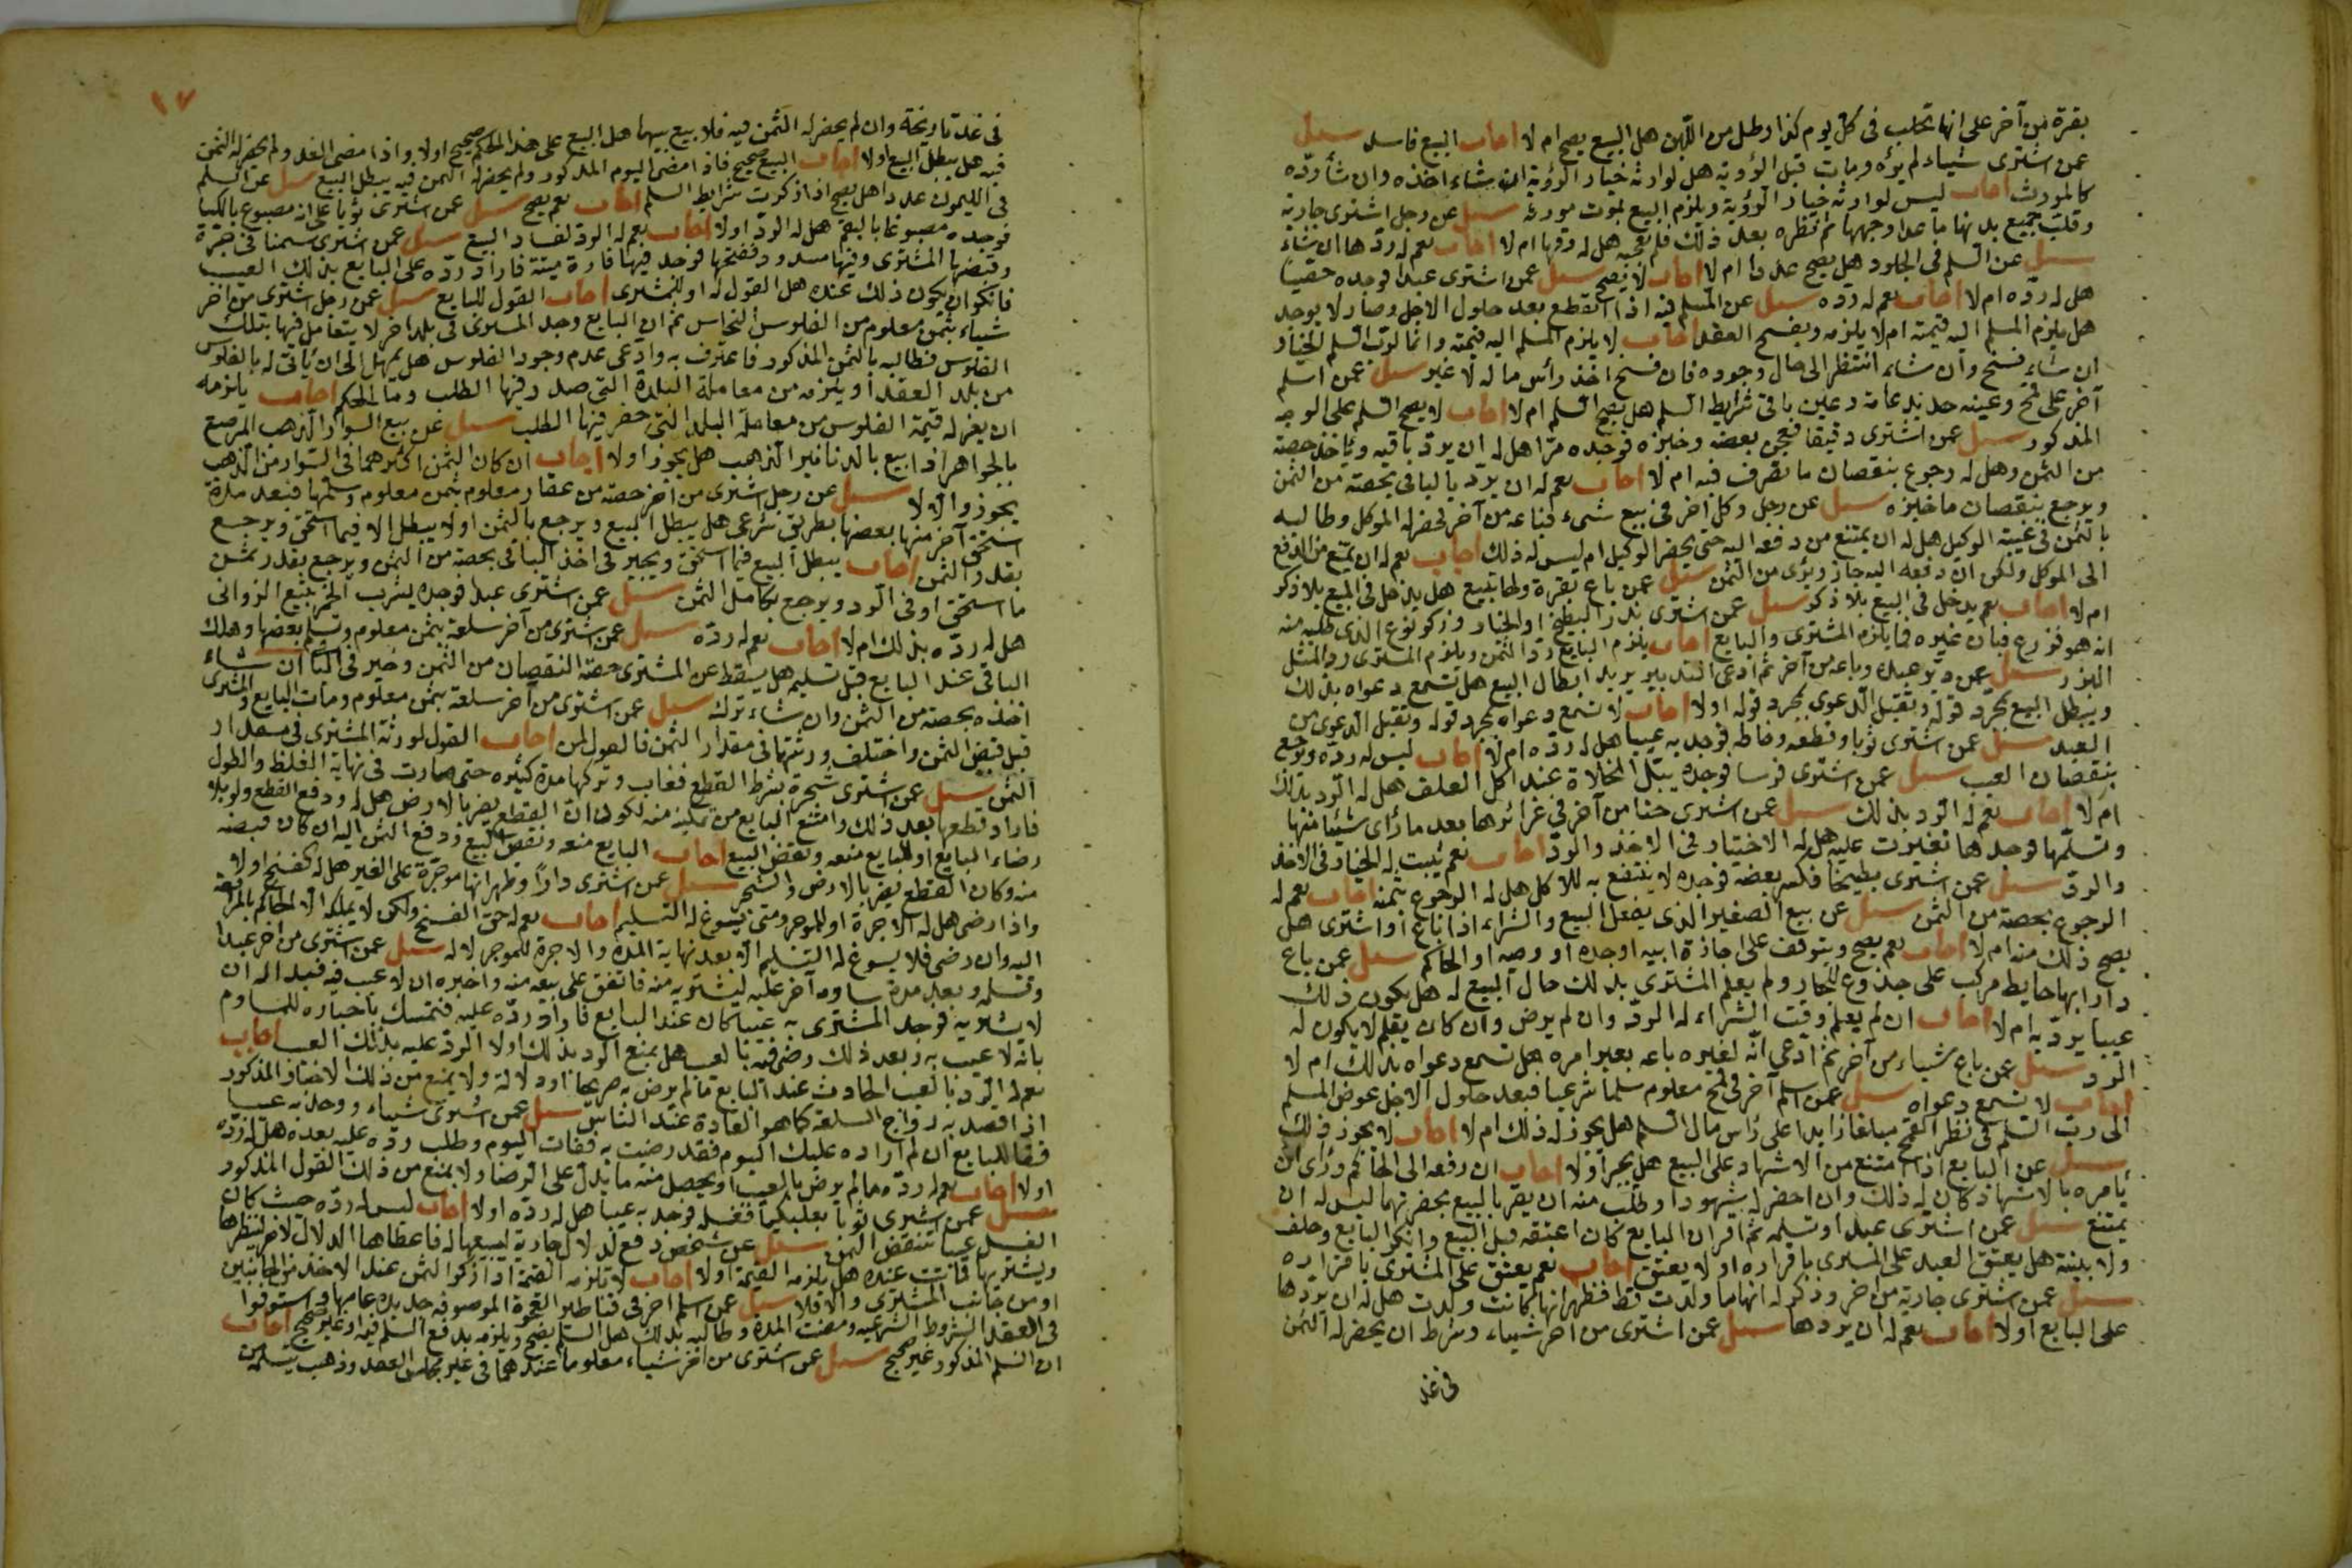 بقرة من آخر على انها تحلب فى كل يوم كذا رطل من اللبن هل البيع يصح ام لا اجاب البيع فاسد سيل
عمن اشترى شيئا ولم يره ومات قبل الرؤية هل لوارثه خيار الرؤية ان شاء اخذه وان شاء رده
كالمورث اجاب ليس لوارثه خيار الرؤية ويلزم البيع بموت مورثه سيل عن رجل اشترى جارية
وقلب جميع بدنها ما عدا وجهها ثم نظره بعد ذلك فلم يعجبه هل له ردها ام لا اجاب نعم له ردها ان شاء
سيل عن السلم فى الجلود هل يصح عددا ام لا اجاب لا يصح سيل عمن اشترى عبدا فوجده
هل له رده ام لا اجاب نعم له رده سيل عن المسلم فيه اذا انقطع بعد حلول الاجل وصار لا يوجد
هل يلزم المسلم اليه قيمته ام لا يلزمه ويفسخ العقد اجاب لا يلزم المسلم اليه قيمته وانما لرب السلم الخيار
ان شاء فسخ وان شاء انتظر الى حال وجوده فان فسخ اخذ رأس ماله لا غير سيل عمن اسلم
آخر على قمح وعينه جديد عامه وعين باقى شرايط السلم هل يصح السلم ام لا اجاب لا يصح السلم على الوجه
المذكور سيل عمن اشترى دقيقا فعجن بعضه وخبزه فوجده مرا هل له ان يرد باقيه وياخذ حصته
من الثمن وهل له رجوع بنقصان ما تصرف فيه ام لا اجاب نعم له ان يرد الباقى بحصته من الثمن
ويرجع بنقصان ما خبزه سيل عن رجل وكل آخر فى بيع شىء فباعه من آخر فحضر له الموكل وطالبه
بالثمن فى غيبة الوكيل هل له ان يمتنع من دفعه اليه حتى يحضر الوكيل ام ليس له ذلك اجاب نعم له ان يمتنع من الدفع
الى الموكل ولكن ان دفعه اليه جاز وبرى من الثمن سيل عمن باع بقرة ولها تبيع هل يدخل فى البيع بلا ذكر
ام لا اجاب نعم يدخل فى البيع بلا ذكر سيل عمن اشترى بذر البطيخ او الخيار وذكر نوع الذى طلبه منه
انه هو فزرع فبان غيره فما يلزم المشترى والبايع اجاب يلزم البايع رد الثمن ويلزم المشترى رد المثل
المبذر سيل عمن دبر عبده وباعه من آخر ثم ادعى التدبير يريد ابطال البيع هل تسمع دعواه بذلك
ويبطل البيع بمجرد قوله وتقبل الدعوى بمجرد قوله اولا اجاب لا تسمع دعواه بمجرد قوله وتقبل الدعوى من
العبد سيل عمن اشترى ثوبا وقطعه وخاطه فوجد به عيبا هل له رده ام لا اجاب ليس له رده ويرجع
بنقصان العيب سيل عمن اشترى فرسا فوجده يبتل المخلاة عند اكل العلف هل له الرد بذلك
ام لا اجاب نعم له الرد بذلك سيل عمن اشترى حنا من آخر فى غرائرها بعد ما رأى شيئا منها
وتسلمها فوجدها تغيرت عليه هل له الاختيار فى الاخذ والرد اجاب نعم يثبت له الخيار فى الاخذ
والرد سيل عمن اشترى بطيخا فكسر بعضه فوجده لا ينتفع به للاكل هل له الرجوع بثمنه اجاب نعم له
الرجوع بحصته من الثمن سيل عن بيع الصغير الذى يعقل البيع والشراء اذا باع او اشترى هل
يصح ذلك منه ام لا اجاب نعم يصح ويتوقف على اجازة ابيه او جده او وصيه او الحاكم سيل عمن باع
دارا بها حايط مركب على جذوع للجار ولم يعلم المشترى بذلك حال البيع له هل يكون ذلك
عيبا يرد به ام لا اجاب ان لم يعلم وقت الشراء له الرد وان لم يرض وان كان يعلم لا يكون له
الرد سيل عمن باع شياء من آخر ثم ادعى انه لغيره باعه بغير امره هل تسمع دعواه بذلك ام لا
اجاب لا تسمع دعواه سيل عمن اسلم آخر فى قمح معلوم سلما شرعيا فبعد حلول الاجل عوض المسلم
الى رب السلم فى نظر القمح مبلغا زايدا على راس مال السلم هل يجوز له ذلك ام لا اجاب لا يجوز ذلك
سيل عن البايع اذا امتنع من الاشهاد على البيع هل يجبر اولا اجاب ان رفعه الى الحاكم ورأى ان
يأمره بالاشهاد كان له ذلك وان احضر له شهودا وطلب منه ان يقر بالبيع بحضرتهما ليس له ان
يمتنع سيل عمن اشترى عبدا وتسلمه ثم اقر ان البايع كان اعتقه قبل البيع وانكر البايع وحلف
ولا بينة هل يعتق العبد على المشترى باقراره او لا يعتق اجاب نعم يعتق على المشترى باقراره
سيل عمن اشترى جارية من اخر وذكر له انها ما ولدت قط فظهر انها كانت ولدت هل له ان يردها
على البايع اولا اجاب نعم له ان يردها سيل عمن اشترى من اخر شياء وشرط ان يحضر له الثمن
فى غد
١٧
فى غد تاريخه وان لم يحضر له الثمن فيه فلا بيع بينهما هل البيع على هذا الحكم صحيح اولا واذا مضى الغد ولم يحضر له الثمن
فيه هل يبطل البيع اولا اجاب البيع صحيح فاذا مضى اليوم المذكور ولم يحضر له الثمن فيه يبطل البيع سيل عن السلم
فى الليمون عددا هل يصح اذا ذكرت شرايط السلم اجاب نعم يصح سيل عمن اشترى ثوبا على انه مصبوغ
فوجده مصبوغا بالبقم هل له الرد اولا اجاب نعم له الرد لفساد البيع سيل عمن اشترى سمنا فى جرة
وقبضها المشترى وفيها مسدود ففتحها فوجد فيها فارة ميتة فاراد رده على البايع بذلك العيب
فانكر ان يكون ذلك عنده هل القول له او للمشترى اجاب القول للبايع سيل عن رجل اشترى من اخر
شياء بثمن معلوم من الفلوس النحاس ثم ان البايع وجد المشترى فى بلد اخر لا يتعامل فيها بتلك
الفلوس فطالبه بالثمن المذكور فاعترف به وادعى عدم وجود الفلوس هل يمهل الى ان ياتى له بالفلوس
من بلد العقد او يلزمه من معاملة البلدة التى صدر فيها الطلب وما الحكم اجاب يلزمه
ان يغرله قيمة الفلوس من معاملة البلد التى حضر فيها الطلب سيل عن بيع السوار الذهب المرصع
بالجواهر اذا بيع بالدنانير الذهب هل يجوز اولا اجاب ان كان الثمن اكثر مما فى السوار من الذهب
يجوز والا لا سيل عن رجل اشترى من اخر حصة من عقار معلوم بثمن معلوم وتسلمها فبعد مدة
استحق آخر منها بعضها بطريق شرعى هل يبطل البيع ويرجع بالثمن او لا يبطل الا فيما استحق ويرجع
بقدر الثمن اجاب يبطل البيع فيما استحق ويخير فى اخذ الباقى بحصته من الثمن ويرجع بقدر ثمن
ما استحق او فى الرد ويرجع بكامل الثمن سيل عمن اشترى عبدا فوجده يشرب الخمر يتبع الزوانى
هل له رده بذلك ام لا اجاب نعم له رده سيل عمن اشترى من آخر سلعة بثمن معلوم وتسلم بعضها وهلك
الباقى عند البايع قبل تسليم هل يسقط عن المشترى حصة النقصان من الثمن وخير فى الباقى ان شاء
اخذه بحصته من الثمن وان شاء ترك سيل عمن اشترى من آخر سلعة بثمن معلوم ومات البايع والمشترى
قبل قبض الثمن واختلف ورثتها فى مقدار الثمن فالقول لمن اجاب القول لورثة المشترى فى مقدار
الثمن سيل عمن اشترى شجرة بشرط القطع فغاب وتركها مدة كثيره حتى صارت فى نهاية الغلظ والطول
فاراد قطعها بعد ذلك وامتنع البايع من تمكينه منه لكون ان القطع يضر بالارض هل له ودفع القطع ولو بلا
رضاء البايع او للبايع منعه ونقض البيع اجاب للبايع منعه ونقض البيع ودفع الثمن اليه ان كان قبضه
منه وكان القطع يضر بالارض والشجر سيل عمن اشترى دارا وظهر انها موجرة على الغير هل له الفسخ اولا
واذا رضى هل له الاجرة او للموجر ومتى يسوغ له التسليم اجاب نعم له حق الفسخ ولكن لا يملكه الا الحاكم بالمرافعة
اليه وان رضى فلا يسوغ له التسليم الا بعد نهاية المدة والاجرة للموجر لا له سيل عمن اشترى من اخر عبدا
وتسلمه وبعد مدة ساومه آخر عليه ليشتريه منه فاتفق على بيعه منه واخبره ان لا عيب فيه فبدا له ان
لا يشتريه فوجد المشترى به عيبا كان عند البايع فاراد رده عليه فتمسك باخباره للمساوم
بانه لا عيب به هل يمنع الرد بذلك اولا اجاب
نعم له الرد بالعيب الحادث عند البايع ما لم يرض به صريحا او دلالة ولا يمنع من ذلك الاخبار المذكور
اذا قصد به رواج السلعة كما هو العادة عند الناس سيل عمن اشترى شياء ووجد به عيبا
فقال للبايع ان لم ارده عليك اليوم فقد رضيت به ففات اليوم وطلب رده عليه بعده هل له رده
اولا اجاب نعم له رده ما لم يرض بالعيب او يحصل منه ما يدل على الرضا ولا يمنع من ذلك القول المذكور
سيل عمن اشترى ثوبا بعلبكيا فغسله فوجد به عيبا هل له رده اولا اجاب ليس له رده حيث كان
الغسل عيبا ينقض الثمن سيل عن شخص دفع لدلال جارية ليبيعها له فاعطاها الدلال لاخر لينظرها
ويشتريها فماتت عنده هل يلزمه القيمة اولا اجاب لا تلزمه القيمة الا اذا ذكر الثمن عند الاخذ من الجانبين
او من جانب المشترى والا فلا سيل عمن اسلم اخر فى قناطير القهوة الموصوفة جديدة عامها واستوفوا
فى العقد الشروط الشرعيه ومضت المدة وطالبه بذلك هل السلم يصح ويلزمه بدفع السلم فيه او غير صحيح اجاب
ان السلم المذكور غير صحيح سيل عن اشترى من اخر شياء معلوما عندهما فى غير مجلس العقد وذهب يتسلمه